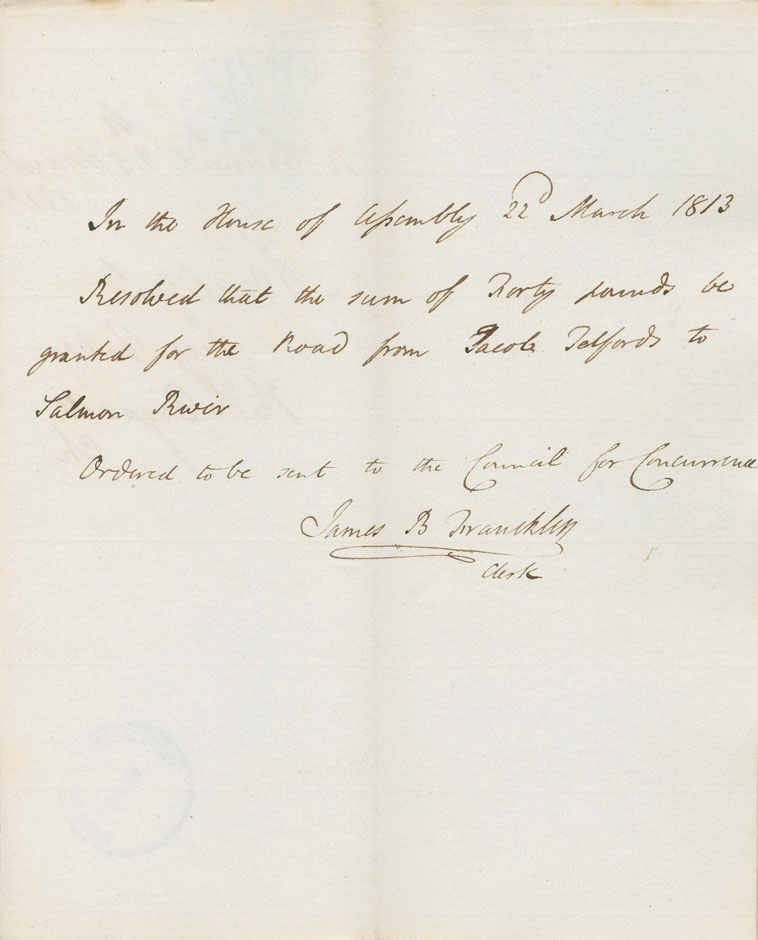 In the House of Assembly 22d March 1813
Resolved that the sum of Forty pounds be
granted for the Road from Jacob Telfords to
Salmon River
Ordered to be sent to the Council for Concurrence
James B Francklin
Clerk